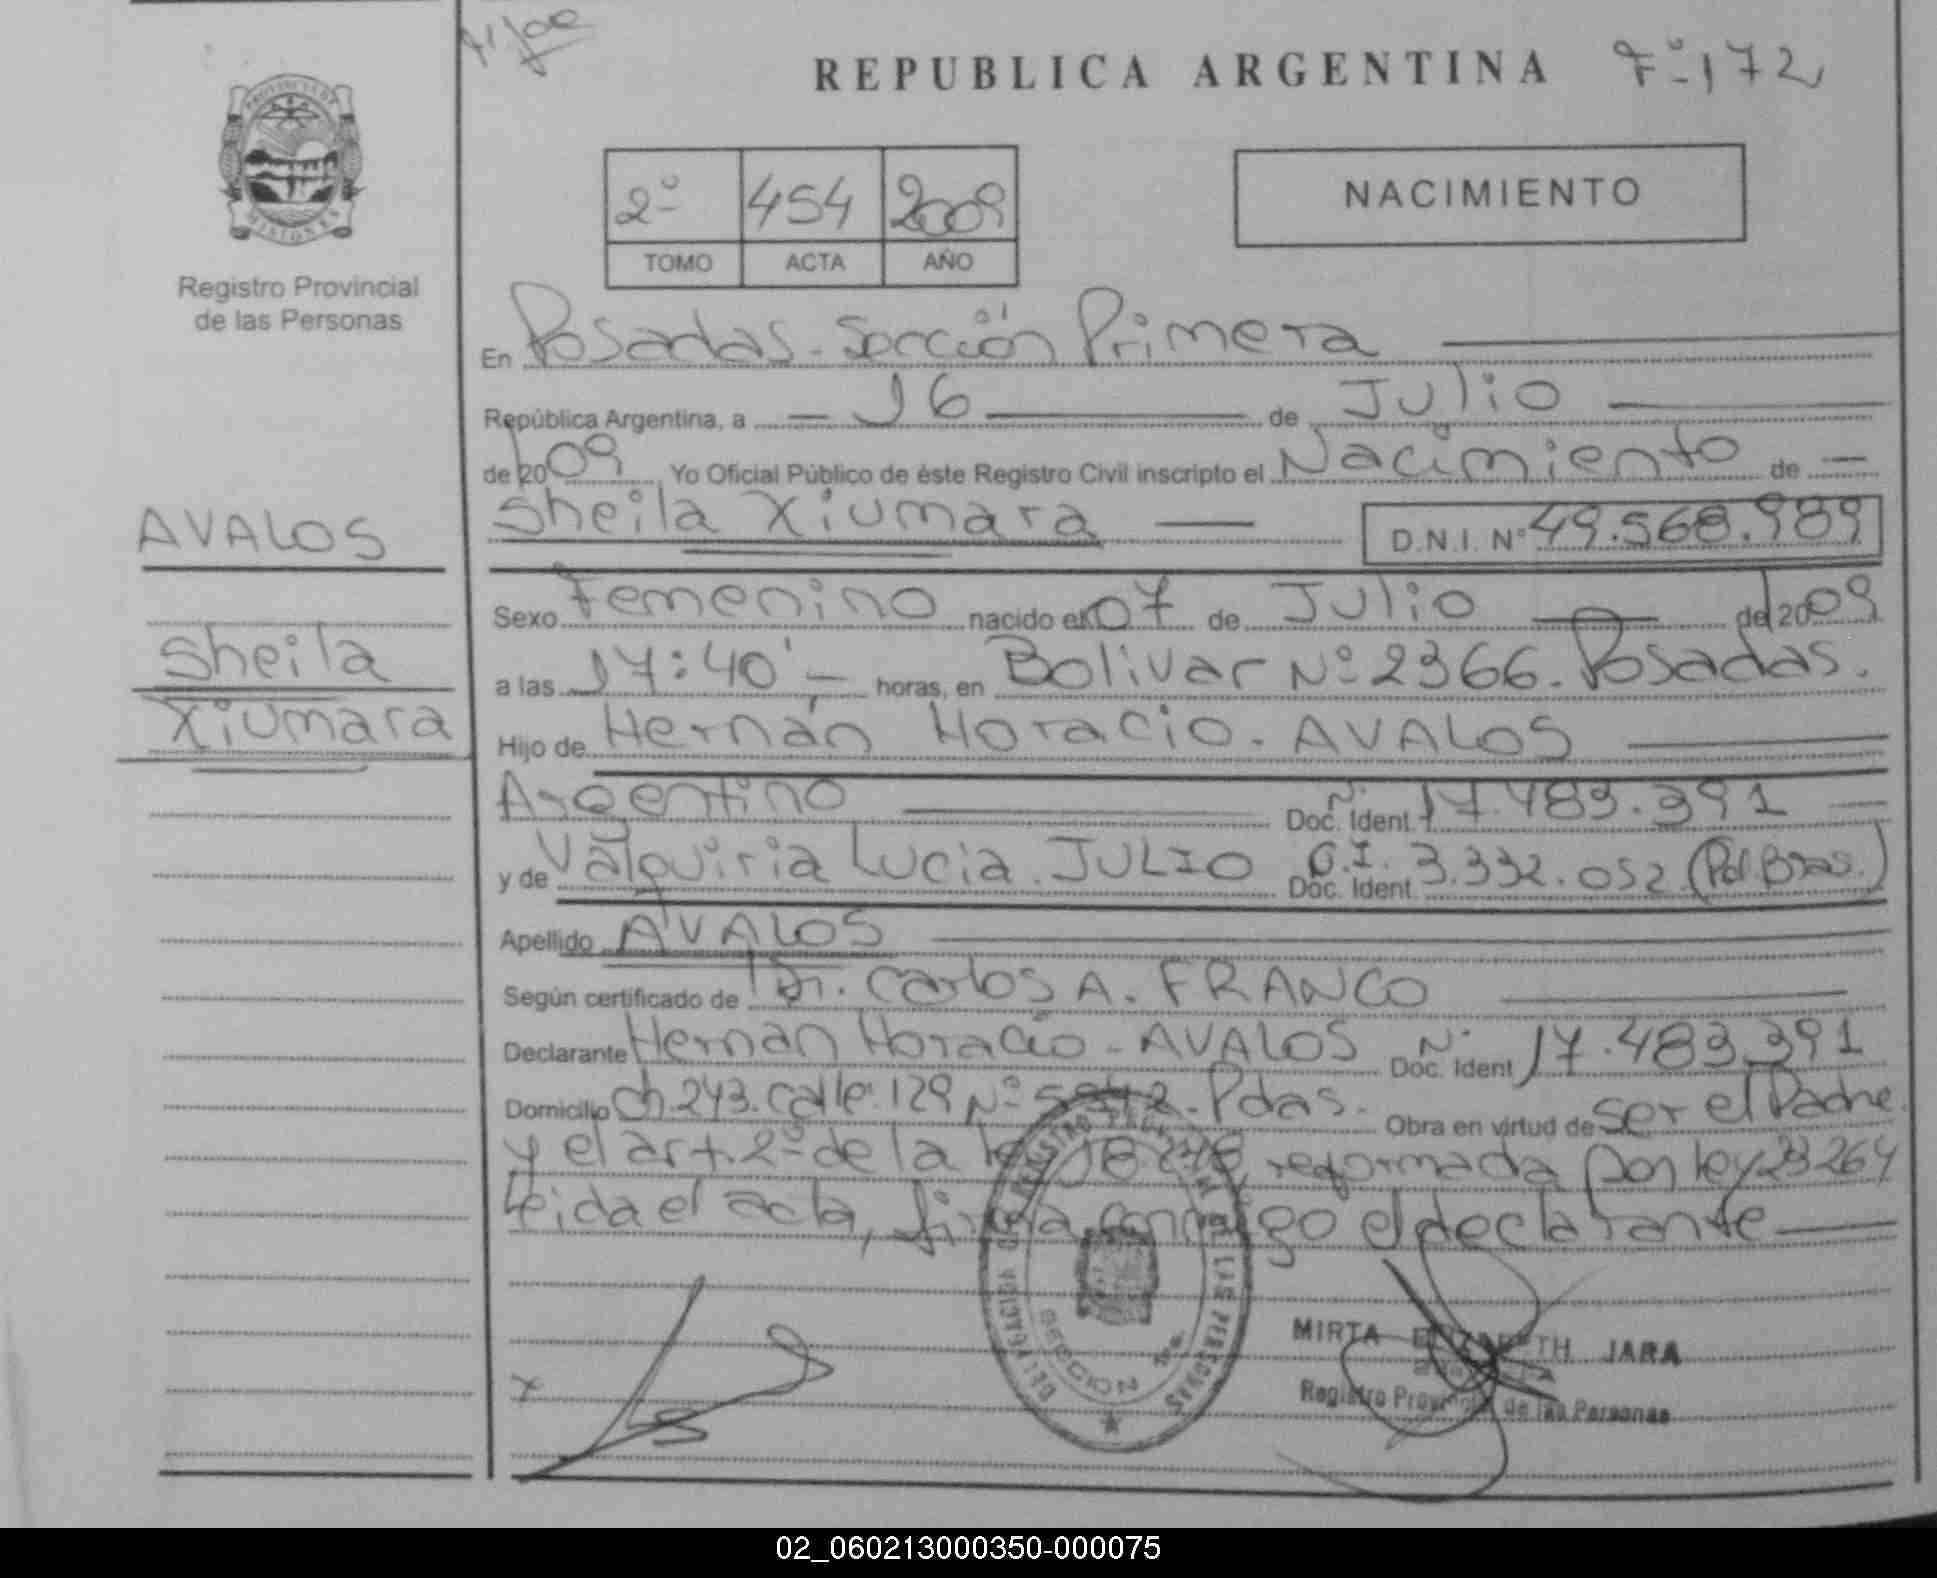 REPUBLICA ARGENTINA Fº-172
PROVINCIA DE
MISIONES
Registro Provincial
de las Personas
2º 454 2009
TOMO ACTA AÑO
NACIMIENTO
En Posadas-Sección Primera
República Argentina, a 16 de Julio
de 2009 Yo Oficial Público de éste Registro Civil inscripto el Nacimiento de
Sheila Xiumara D.N.I. Nº 49.568.989
AVALOS
Sheila
Xiumara
Sexo Femenino nacido el 07 de Julio de 2009
a las 17:40' horas, en Bolivar Nº 2366. Posadas.
Hijo de Hernán Horacio. AVALOS
Argentino Doc. Ident. Nº 17.483.391
y de Valquiria Lucia. JULIO Doc. Ident. C.I. 3.332.052 (Pol. Bras.)
Apellido AVALOS
Según certificado de Dr. Carlos A. FRANCO
Declarante Hernán Horacio - AVALOS Doc. Ident Nº 17.483.391
Domicilio Ch. 243. Calle: 129 Nº Pdas. Obra en virtud de ser el Padre
y el art. 2º de la ley 18.248, reformada por ley 23264
Leida el acta, firma conmigo el declarante
MIRTA ELIZABETH JARA
Registro Provincial de las Personas
DELEGACION
REGISTRO
DE LAS PERSONAS
SECCION 1ra.
02_060213000350-000075